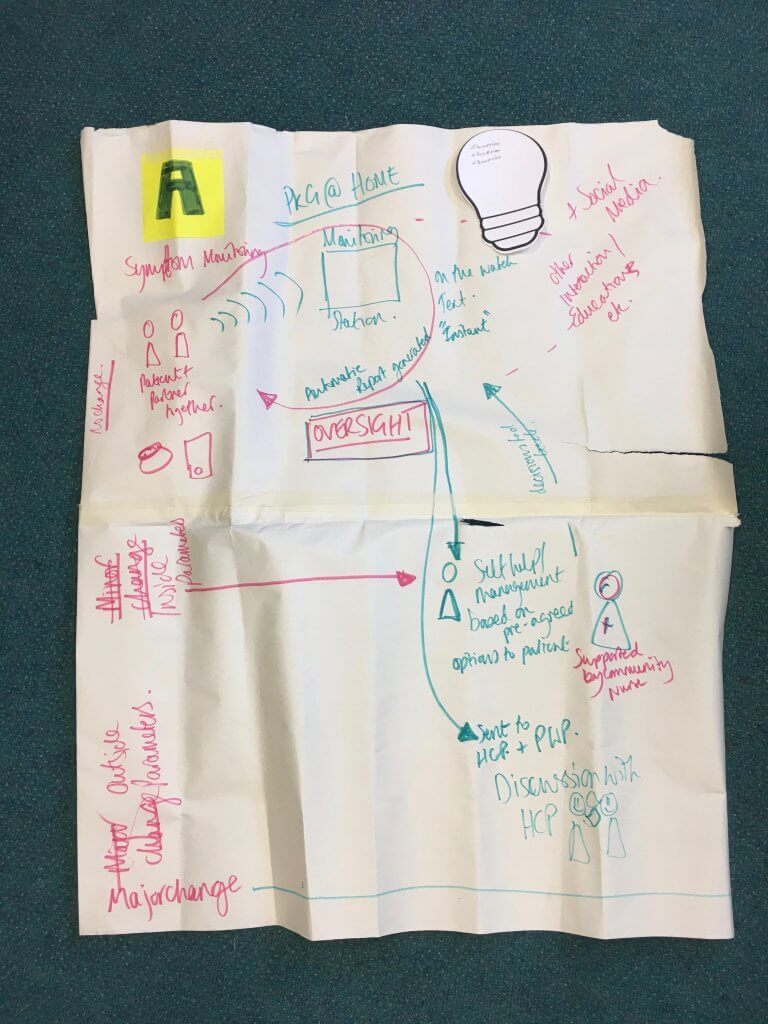 A
PKG @ HOME
Education
Education
Education
+ Social
Media.
Symptom Monitoring
Monitoring
Station.
on the watch
Text.
"Instant"
other
Interaction/
Education
etc.
No change.
Patient +
Partner
together.
Automatic
Report generated
OVERSIGHT
decisions fed
Minor
change
Inside
Parameters
Self help/
Management
based on
pre-agreed
options to patient.
Supported
by community
Nurse
Sent to
HCP. + PWP.
Discussion with
HCP
Major outside
change Parameters.
Major change